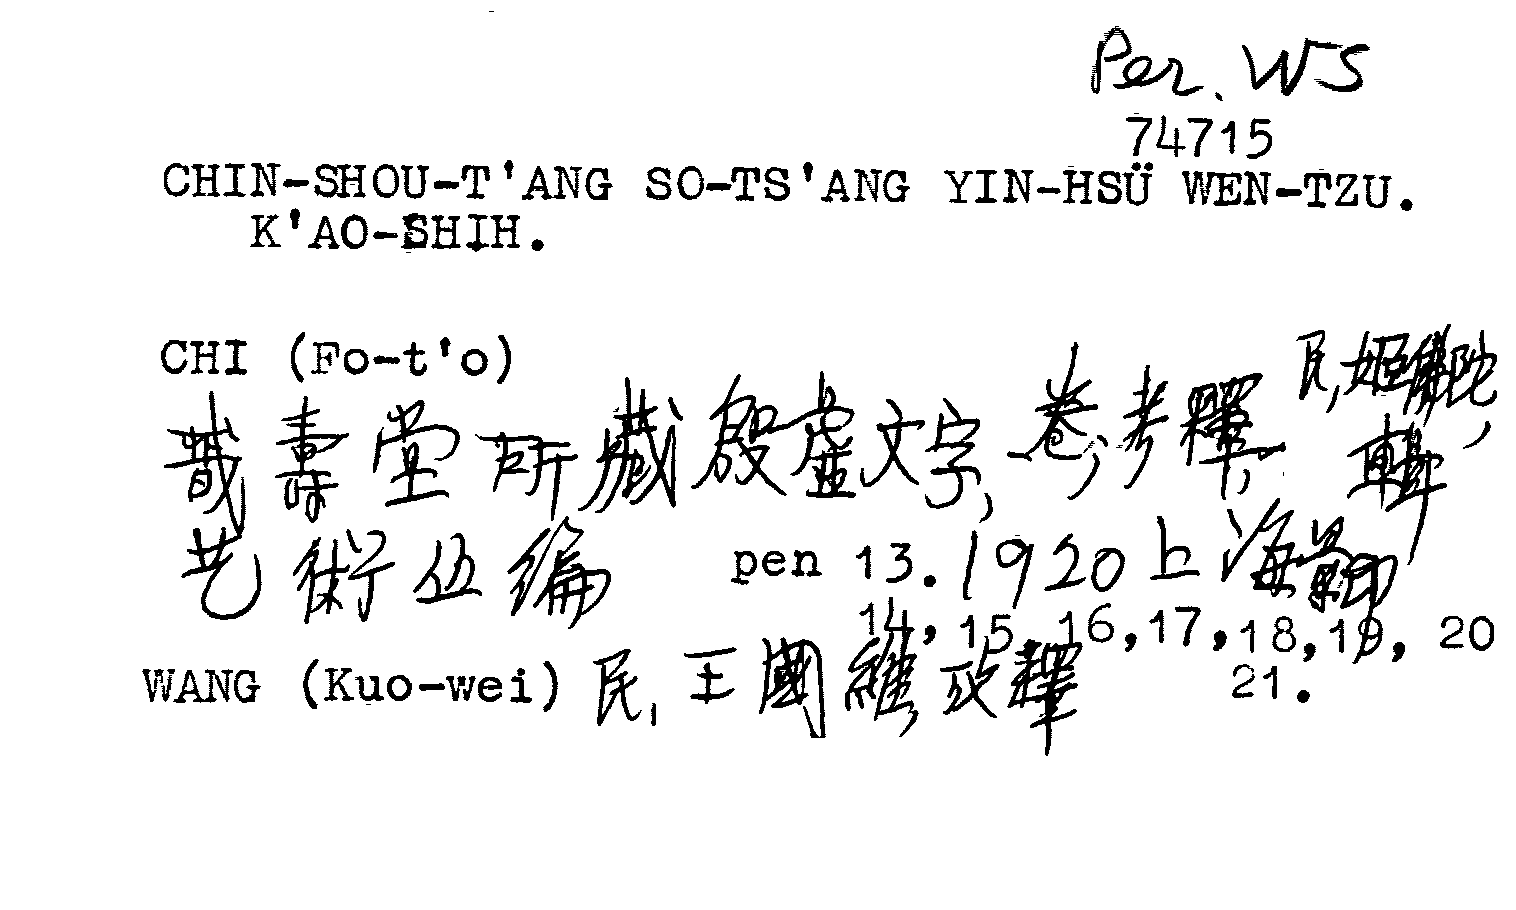 Per. WS
74715
CHIN-SHOU-T'ANG SO-TS'ANG YIN-HSÜ WEN-TZU.
K'AO-SHIH.
CHI (Fo-t'o)
民,姬佛陀,
戩壽堂所藏殷虛文字,一卷,考釋一
輯
艺術伍編 pen 13. 1920上海影印
14, 15, 16, 17, 18, 19, 20
WANG (Kuo-wei) 民, 王國維攷釋 21.